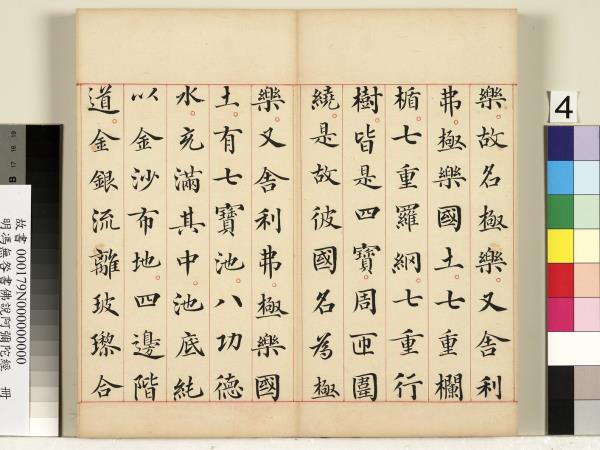 樂故名極樂又舍利
弗極樂國土七重欄
楯七重羅網七重行
樹皆是四寶周匝圍
繞是故彼國名為極
樂又舍利弗極樂國
土有七寶池八功德
水充滿其中池底純
以金沙布地四邊階
道金銀流離玻瓈合
4
故書 000179N000000000
明馮無咎書佛說阿彌陀經 冊